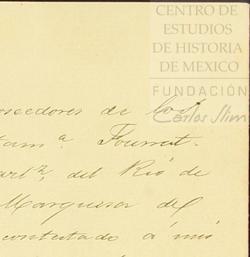 CENTRO DE
ESTUDIOS
DE HISTORIA
DE MEXICO
FUNDACIÓN
Carlos Slim
oseedores de
tamª Fournt.
artz, del Rio de
Marquesa del
contestado á mis